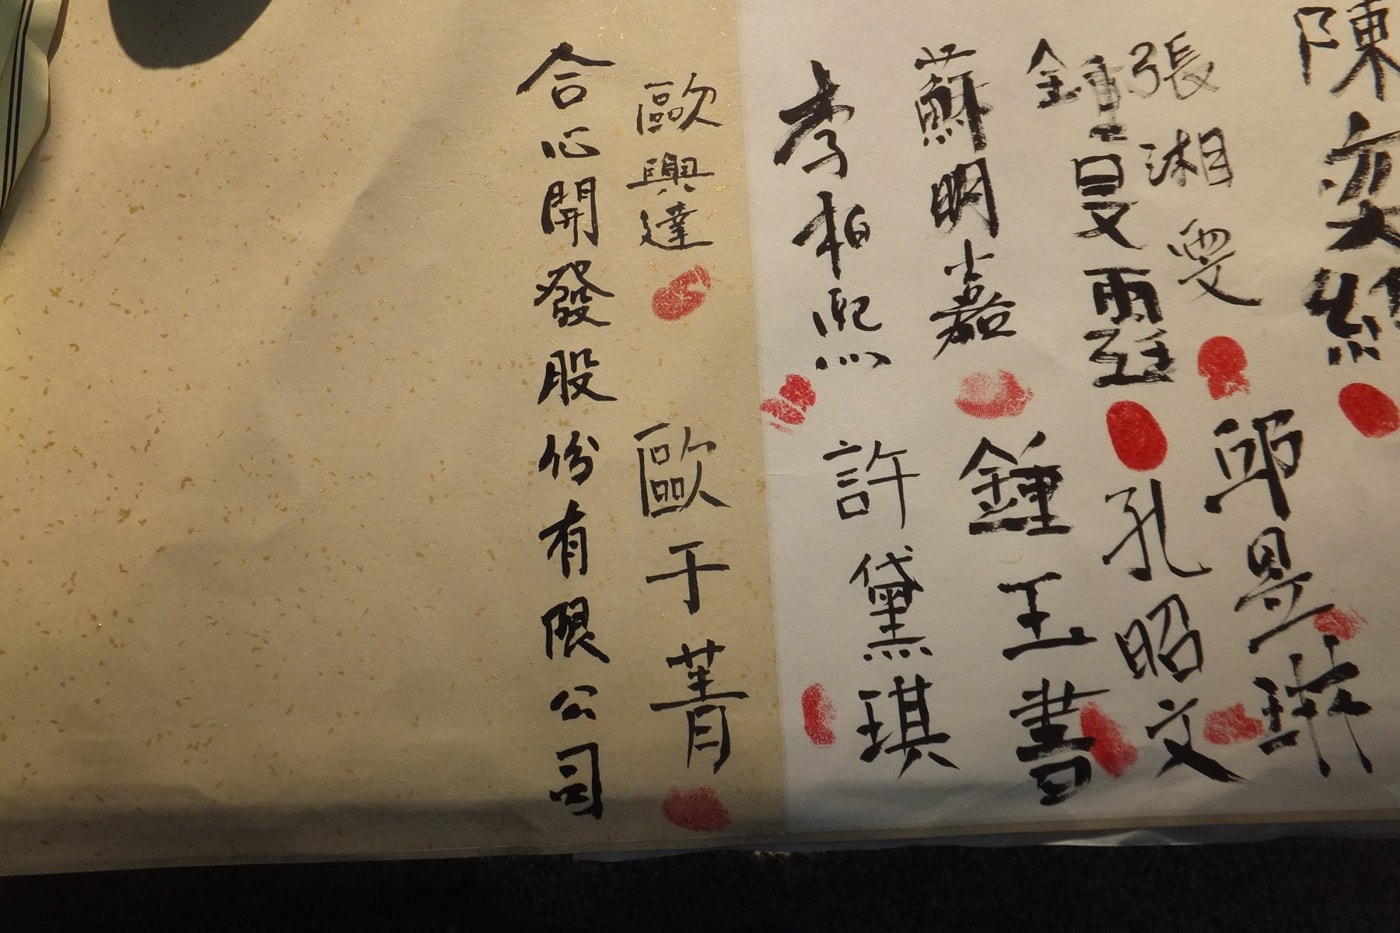 陳奕
張湘雯
邱昱琳
鍾旻霆
孔昭文
蘇明嘉
鍾玉書
李柏熙
許黛琪
歐興達
歐于菁
合心開發股份有限公司